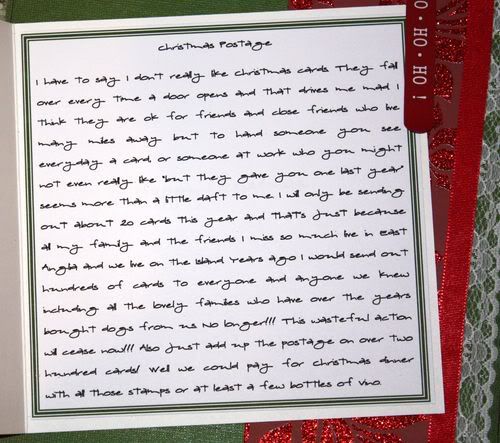 Christmas Postage
I have to say I don't really like Christmas cards. They fall
over every time a door opens and that drives me mad. I
think they are ok for friends and close friends who live
many miles away but to hand someone you see
everyday a card, or someone at work who you might
not even really like "but they gave you one last year"
seems more than a little daft to me. I will only be sending
out about 20 cards this year and that's just because
all my family and the friends I miss so much live in East
Anglia and we live on the Island. Years ago I would send out
hundreds of cards to everyone and anyone we knew
including all the lovely families who have over the years
bought dogs from us. No longer!!! This wasteful action
will cease now!!! Also just add up the postage on over two
hundred cards! Well we could pay for Christmas dinner
with all those stamps or at least a few bottles of vino.
O·HO·HO!